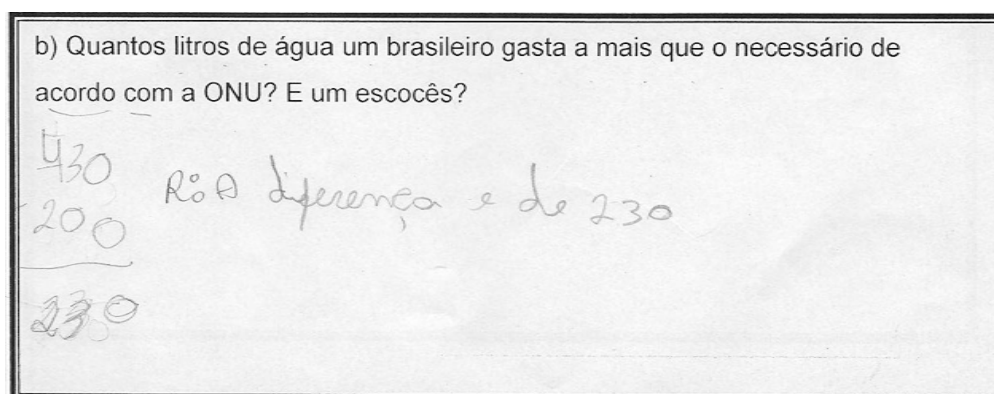 b) Quantos litros de água um brasileiro gasta a mais que o necessário de
acordo com a ONU? E um escocês?
430
- 200
230
R: A diferença e de 230